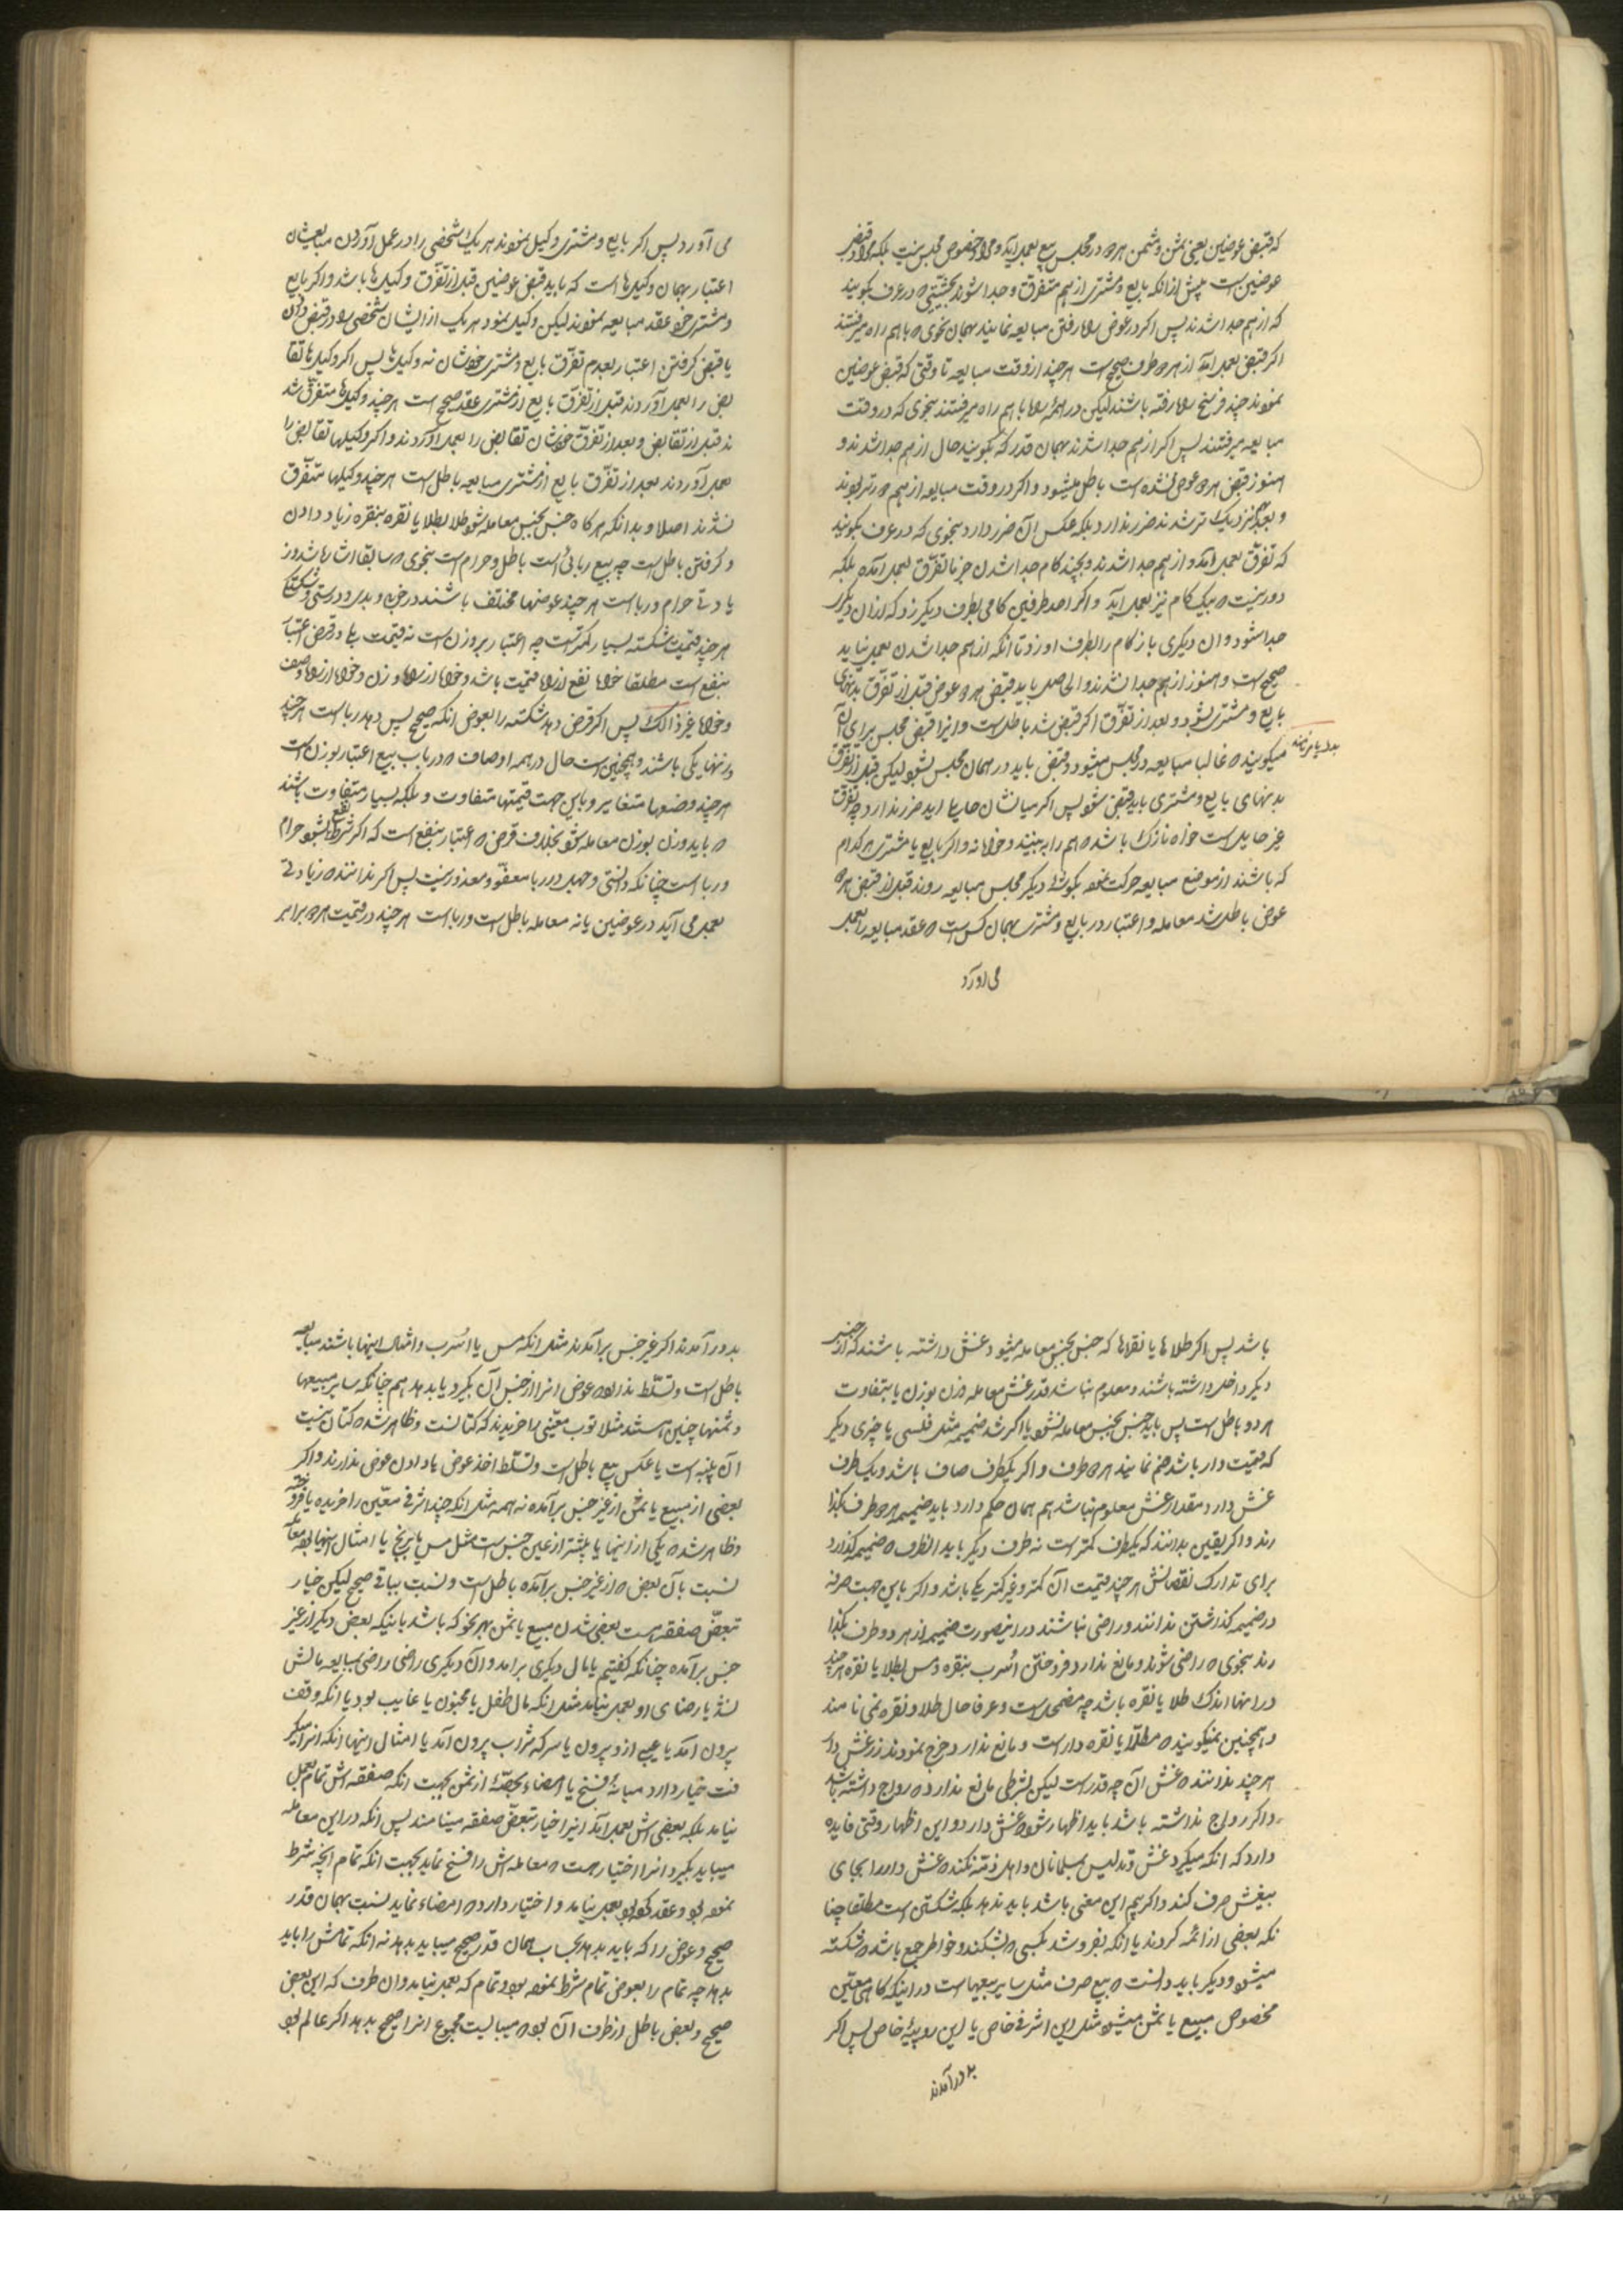 که قبض عوضین یعنی ثمن و مثمن هر دو در مجلس بیع بعمل آید و مراد خصوص مجلس نیست بلکه مراد قبض
عوضین است پیش از انکه بایع و مشتری از هم متفرق و جدا شوند بحیثیتی که در عرف بگویند
که از هم جدا شدند پس اکر در عرض راه رفتن مبایعه نمایند بهمان نحوی که باهم راه میرفتند
اکر قبض بعمل آید از هر دو طرف صحیح است هر چند از وقت مبایعه تا وقتی که قبض عوضین
نمودند چند فرسخ راه رفته باشند لیکن در همه راه باهم راه میرفتند بنحوی که در وقت
مبایعه میرفتند پس اکر از هم جدا شدند بهمان قدر که بگویند حال از هم جدا شدند و
هنوز قبض هر دو عوض نشده است باطل میشود و اکر در وقت مبایعه از هم دورتر بودند
و بعد نزدیک تر شدند ضرر ندارد بلکه عکس آن ضرر دارد بنحوی که در عرف بگویند
که تفرق بعمل آمد و از هم جدا شدند و بچند کام جدا شدن جزما تفرق بعمل آمده بلکه
دور نیست که بیک کام نیز بعمل آید و اکر احد طرفین کامی بطرف دیگر زد که از ان دیگر
جدا شود و ان دیگری باز کام را بطرف او زد تا انکه از هم جدا شدن بعمل نیاید
صحیح است و هنوز از هم جدا نشدند و الحاصل باید قبض هر دو عوض قبل از تفرق بدنهای
بایع و مشتری بشود و بعد از تفرق اکر قبض شد باطل است و اینرا قبض مجلس برای آن
میگویند که غالبا مبایعه در مجلس میشود و قبض باید در همان مجلس بشود لیکن قبل از تفرق
بدنهای بایع و مشتری باید قبض شود پس اکر میانشان حایل اید ضرر ندارد چه تفرق
غیر حایل است خواه نازک باشد که هم را به بینند و خواه نه و اکر بایع یا مشتری هر کدام
که باشند از موضع مبایعه حرکت نموده بگوشه دیگر مجلس مبایعه روند قبل از قبض هر دو
عوض باطل شد معامله و اعتبار در بایع و مشتری بهمان کس است که عقد مبایعه را بعمل
می اورد
می آورد پس اکر بایع و مشتری وکیل نمودند هر یک شخصی را در عمل آوردن مبایعه‌شان
اعتبار بهمان وکیلها است که باید قبض عوضین قبل از تفرق وکیلها باشد و اکر بایع
و مشتری خود عقد مبایعه نمودند لیکن وکیل نمود هر یک از ایشان شخصی را در قبض دادن
یا قبض کرفتن اعتبار بعدم تفرق بایع و مشتری خودشان نه وکیلها پس اکر وکیلها تقا
بض را بعمل آوردند قبل از تفرق بایع از مشتری عقد صحیح است هر چند وکیلها متفرق شد
ند قبل از تقابض و بعد از تفرق خودشان تقابض را بعمل آوردند و اکر وکیلها تقابض را
بعمل آوردند بعد از تفرق بایع از مشتری مبایعه باطل است هر چند وکیلها متفرق
نشدند اصلا و بدانکه هر کاه جنس بجنس معامله شود طلا بطلا یا نقره بنقره زیاد دادن
و کرفتن باطل است چه بیع ربائی است باطل و حرام است بنحوی که سابقا اشاره شد و ز
یادتی حرام و ربا است هر چند عوضها مختلف باشند در خوبی و بدی و درستی و شکستگی
هر چند قیمت شکسته بسیار کمتر است چه اعتبار بر وزن است نه قیمت بلی در قرض اعتبار
بنفع است مطلقا خواه نفع از راه قیمت باشد و خواه از راه وزن و خواه از راه وصف
و خواه غیر ذالک پس اکر قرض دهد شکسته را بعوض انکه صحیح پس دهد ربا است هر چند
وزنها یکی باشند و همچنین است حال در همه اوصاف که در باب بیع اعتبار بوزن است
هر چند وصفها متغایر و باین جهت قیمتها متفاوت و بلکه بسیار متفاوت باشند
که باید وزن بوزن معامله شود بخلاف قرض که اعتبار بنفع است که اکر شرط نفع بشود حرام
و ربا است چنانکه دانستی و جهل در ربا معفو و معذور نیست پس اکر ندانند که زیادتی
بعمل می آید در عوضین یا نه معامله باطل است و ربا است هر چند در قیمت هر دو برابر
باشد پس اکر طلاها یا نقرها که جنس بجنس معامله میشود غش داشته باشند که از جنس
دیگر داخل داشته باشند و معلوم نباشد قدر غش معامله وزن بوزن یا بتفاوت
هر دو باطل است پس باید جنس بجنس معامله نشود یا اکر شد ضمیمه مثل فلسی یا چیزی دیگر
که قیمت دار باشد ضم نمایند هر دو طرف و اکر یکطرف صاف باشد و یک طرف
غش دارد مقدار غش معلوم نباشد هم همان حکم دارد باید ضمیمه هر دو طرف بگذا
رند و اکر یقین بدانند که یکطرف کمتر است نه طرف دیگر باید انطرف که ضمیمه گذارد
برای تدارک نقصانش هر چند قیمت آن کمتر و غیر کمتر یکی باشد و اکر باین جهت صرفه
در ضمیمه گذاشتن ندانند و راضی نباشند در اینصورت ضمیمه از هر دو طرف بگذا
رند بنحوی که راضی شوند و مانع ندارد فروختن اسرب بنقره و مس بطلا یا نقره هر چند
در اینها اندک طلا یا نقره باشد چه مضمحل است و عرفا حال طلا و نقره نمی نامند
و همچنین نمیگویند که مطلا یا نقره دار است و مانع ندارد خرج نمودن زر غش دار
هر چند ندانند که غش آن چه قدر است لیکن بشرطی مانع ندارد که رواج داشته باشد
و اکر رواج نداشته باشد باید اظهار شود که غش دارد و این اظهار وقتی فایده
دارد که انکه میگیرد غش و تدلیس بمسلمانان و اهل ذمه نکند که غش دار را بجای
بیغش صرف کند و اکر بیم این معنی باشد باید ندهد بلکه شکستن است مطلقا چنا
نکه بعضی از ائمه کردند یا انکه بفروشد بکسی که بشکند و خواطر جمع باشد که شکسته
میشود و دیگر باید دانست که بیع صرف مثل سایر بیعها است در اینکه کاهی معین
مخصوص مبیع یا ثمن میشود مثل این اشرفی خاص یا این روپیهٔ خاص پس اکر
بدور آمدند
بدور آمدند اکر غیر جنس برآمدند مثل انکه مس یا اسرب و امثال اینها باشند مبایعه
باطل است و تسلط ندارد که عوض انرا از جنس آن بگیرد یا بدهد هم چنانکه سایر مبیعها
و ثمنها چنین هستند مثلا ثوب معینی را خریدند که کتانست و ظاهر شد که کتان نیست
آن پنبه است یا عکس بیع باطل است و تسلط اخذ عوض یا دادن عوض ندارند و اکر
بعضی از مبیع یا ثمن از غیر جنس برآمده نه همه مثل انکه چند اشرفی معین را خریده یا فروخته
و ظاهر شد که یکی از اینها یا بیشتر از غیر جنس است مثل مس یا برنج یا امثال اینها
نسبت بآن بعض که از غیر جنس برآمده باطل است و نسبت بباقی صحیح لیکن خیار
تبعض صفقه هست بعضی شدن مبیع یا ثمن بهر نحو که باشد باینکه بعض دیگر از غیر
جنس برآمده چنانکه گفتیم یا مال دیگری برامد و آن دیگری راضی بمبایعه مالش
نشد یا رضای او بعمل نیامد مثل انکه مال طفل یا مجنون یا غایب بود یا انکه وقف
بیرون آمد یا عیبی از و بیرون یا سرکه شراب بیرون آمد یا امثال اینها انکه انرا میگر
فت خیار دارد میانهٔ فسخ یا امضاء بحصهٔ از ثمن بجهت انکه صفقه اش تمام بعمل
نیامد بلکه بعضی اش بعمل آمد اینرا خیار تبعض صفقه مینامند پس انکه در این معامله
میباید بگیرد انرا اختیار هست که معامله اش را فسخ نماید بجهت انکه تمام انچه شرط
نموده بود و عقد بعمل نیامد و اختیار دارد که امضاء نماید نسبت بهمان قدر
صحیح و عوض را که باید بدهد بحساب همان قدر صحیح میباید بدهد نه انکه تمامش را باید
بدهد چه تمام را بعوض تمام شرط نموده بود و تمام که بعمل نیامد و ان طرف که این بعض
صحیح و بعض باطل از طرف آن بود میبایست مجموع انرا صحیح بدهد اکر عالم بود